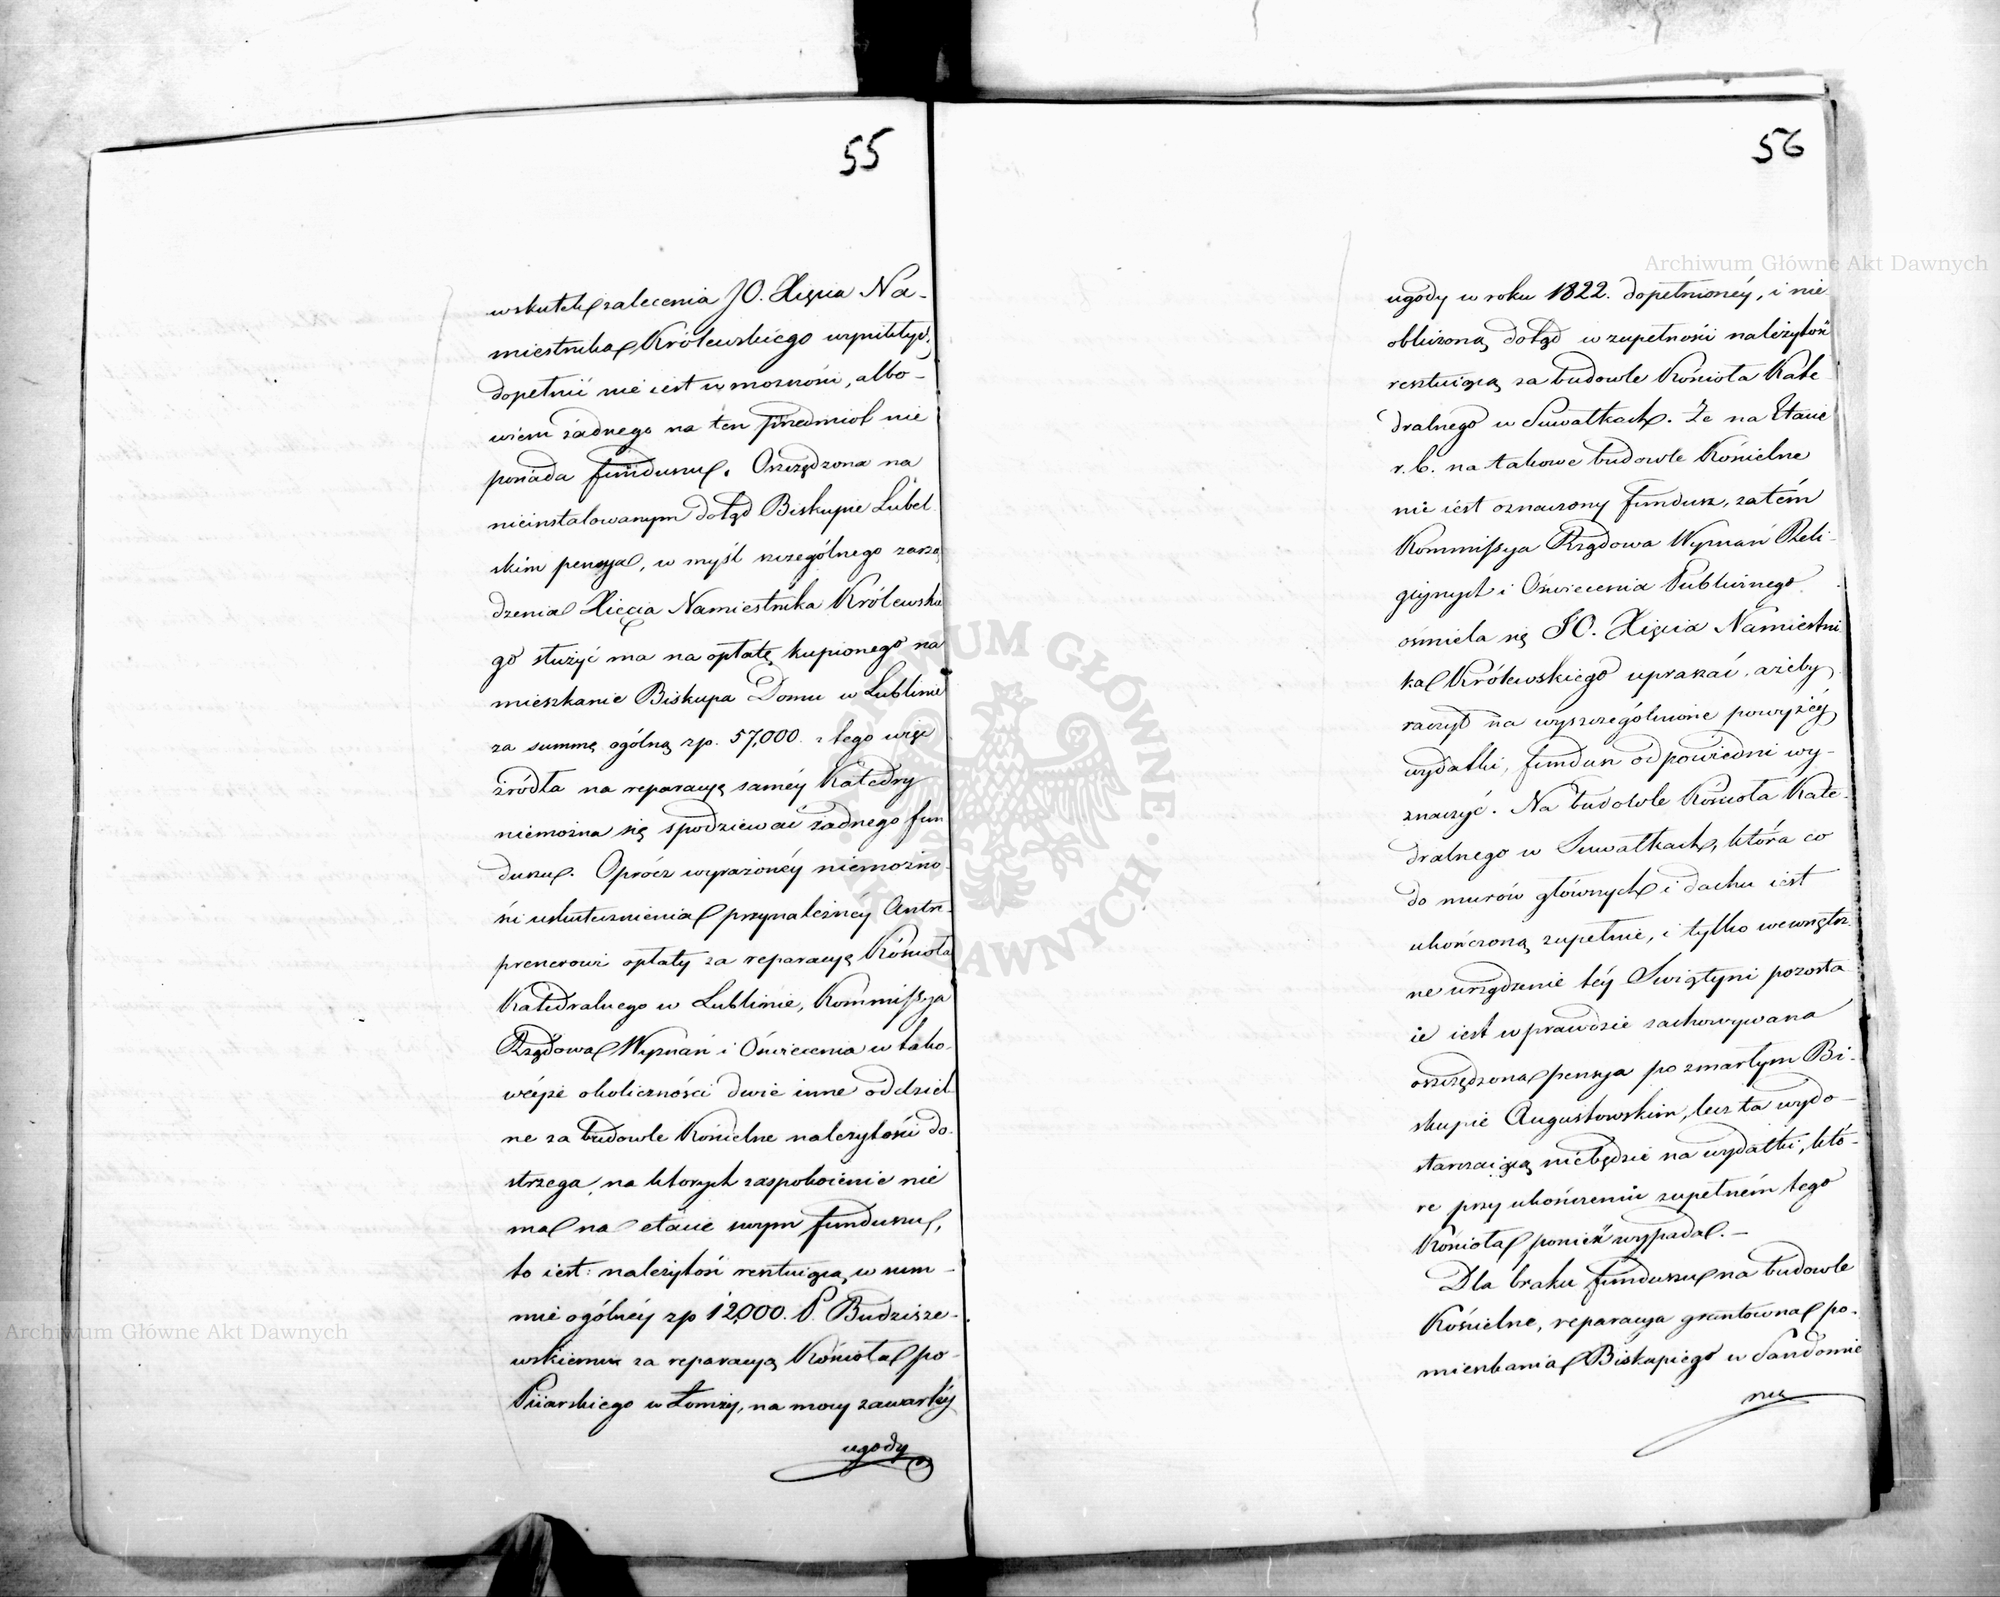 55
wskutek zalecenia JO. Xięcia Na-
miestnika Królewskiego wynikłych
dopełnić nie iest w możności, albo-
wiem żadnego na ten przedmiot nie
posiada funduszu. Oszczędzona na
nieinstalowanym dotąd Biskupie Lubel
skim pensya, w myśl szczególnego zarzą
dzenia Xięcia Namiestnika Królewskie
go służyć ma na opłatę kupionego na
mieszkanie Biskupa Domu w Lublinie
za summę ogólną zp. 57,000. z tego więc
źródła na reparacyę saméy Katedry
niemożna się spodziewać żadnego fun
duszu. Oprócz wyrażonéy niemożno-
ści uskutecznienia przynależnéy Antre-
prenerowi opłaty za reparacyę Kościoła
Katedralnego w Lublinie, Kommissya
Rządowa Wyznań i Oświecenia w tako-
wéyże okoliczności dwie inne oddziel
ne za budowle Kościelne należytości do-
strzega, na których zaspokoienie nie
ma na etacie swym funduszu,
to iest: należytość resztuiącą w sum-
mie ogólnéy zp 12,000. P. Budzisze-
wskiemu za reparacyą Kościoła po-
Piiarskiego w Łomży, na mocy zawartéy
ugody
56
ugody w roku 1822. dopełnionéy, i nie
obliczoną dotąd w zupełności należytość
resztuiącą za budowle Kościoła Kate
dralnego w Suwałkach. Że na Etacie
r. b. na takowe budowle Kościelne
nie iest oznaczony fundusz, zatém
Kommissya Rządowa Wyznań Reli-
giynych i Oświecenia Publicznego
ośmiela się JO. Xięcia Namiestni
ka Królewskiego upraszać, ażeby
raczył na wyszczególnione powyżéy
wydatki, fundusz odpowiedni wy-
znaczyć. Na budowle Kościoła Kate-
dralnego w Suwałkach, która co
do murów głównych i dachu iest
ukończoną zupełnie, i tylko wewnętrz
ne urządzenie téy Swiątyni pozosta
ie iest wprawdzie zachowywana
oszczędzona pensya po zmarłym Bi-
skupie Augustowskim, lecz ta wydo-
starczaiącą niebędzie na wydatki, któ-
re przy ukończeniu zupełném tego
Kościoła ponieść wypada. —
Dla braku funduszu na budowle
Kościelne, reparacya gruntowna po-
mieszkania Biskupiego w Sandomie
rzu
Archiwum Główne Akt Dawnych
Archiwum Główne Akt Dawnych
ARCHIWUM GŁÓWNE AKT DAWNYCH